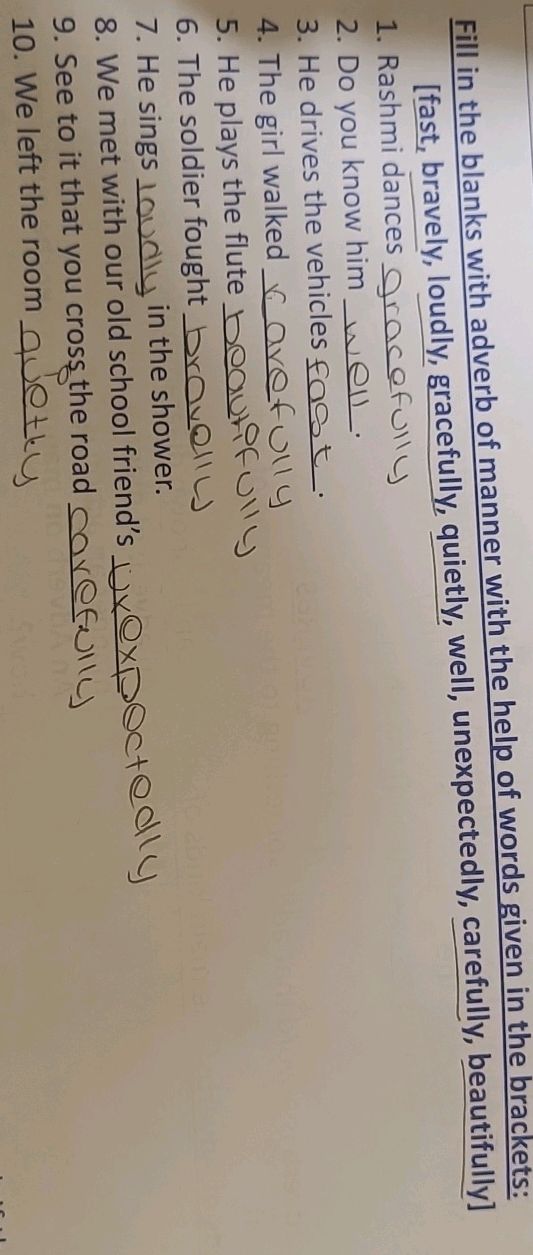 Fill in the blanks with adverb of manner with the help of words given in the brackets:
[fast, bravely, loudly, gracefully, quietly, well, unexpectedly, carefully, beautifully]
1. Rashmi dances gracefully
2. Do you know him well.
3. He drives the vehicles fast.
4. The girl walked carefully
5. He plays the flute beautifully
6. The soldier fought bravelly
7. He sings loudly in the shower.
8. We met with our old school friend's uxexpectedly
9. See to it that you cross the road carefully
10. We left the room quetly